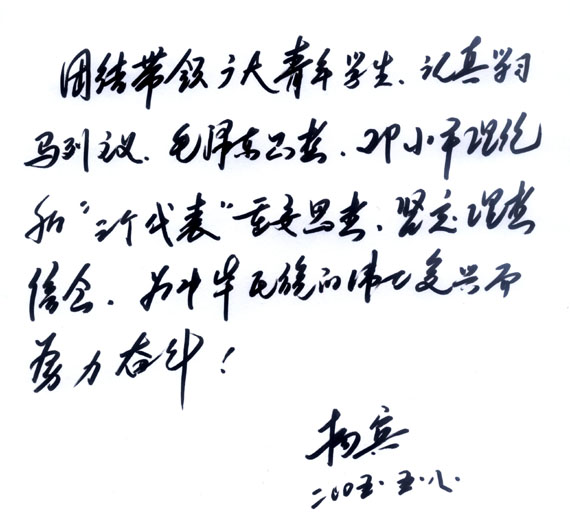 团结带领广大青年学生、认真学习
马列主义、毛泽东思想、邓小平理论
和“三个代表”重要思想、坚定理想
信念、为中华民族的伟大复兴而
努力奋斗！
杨宾
二00五.五.八.